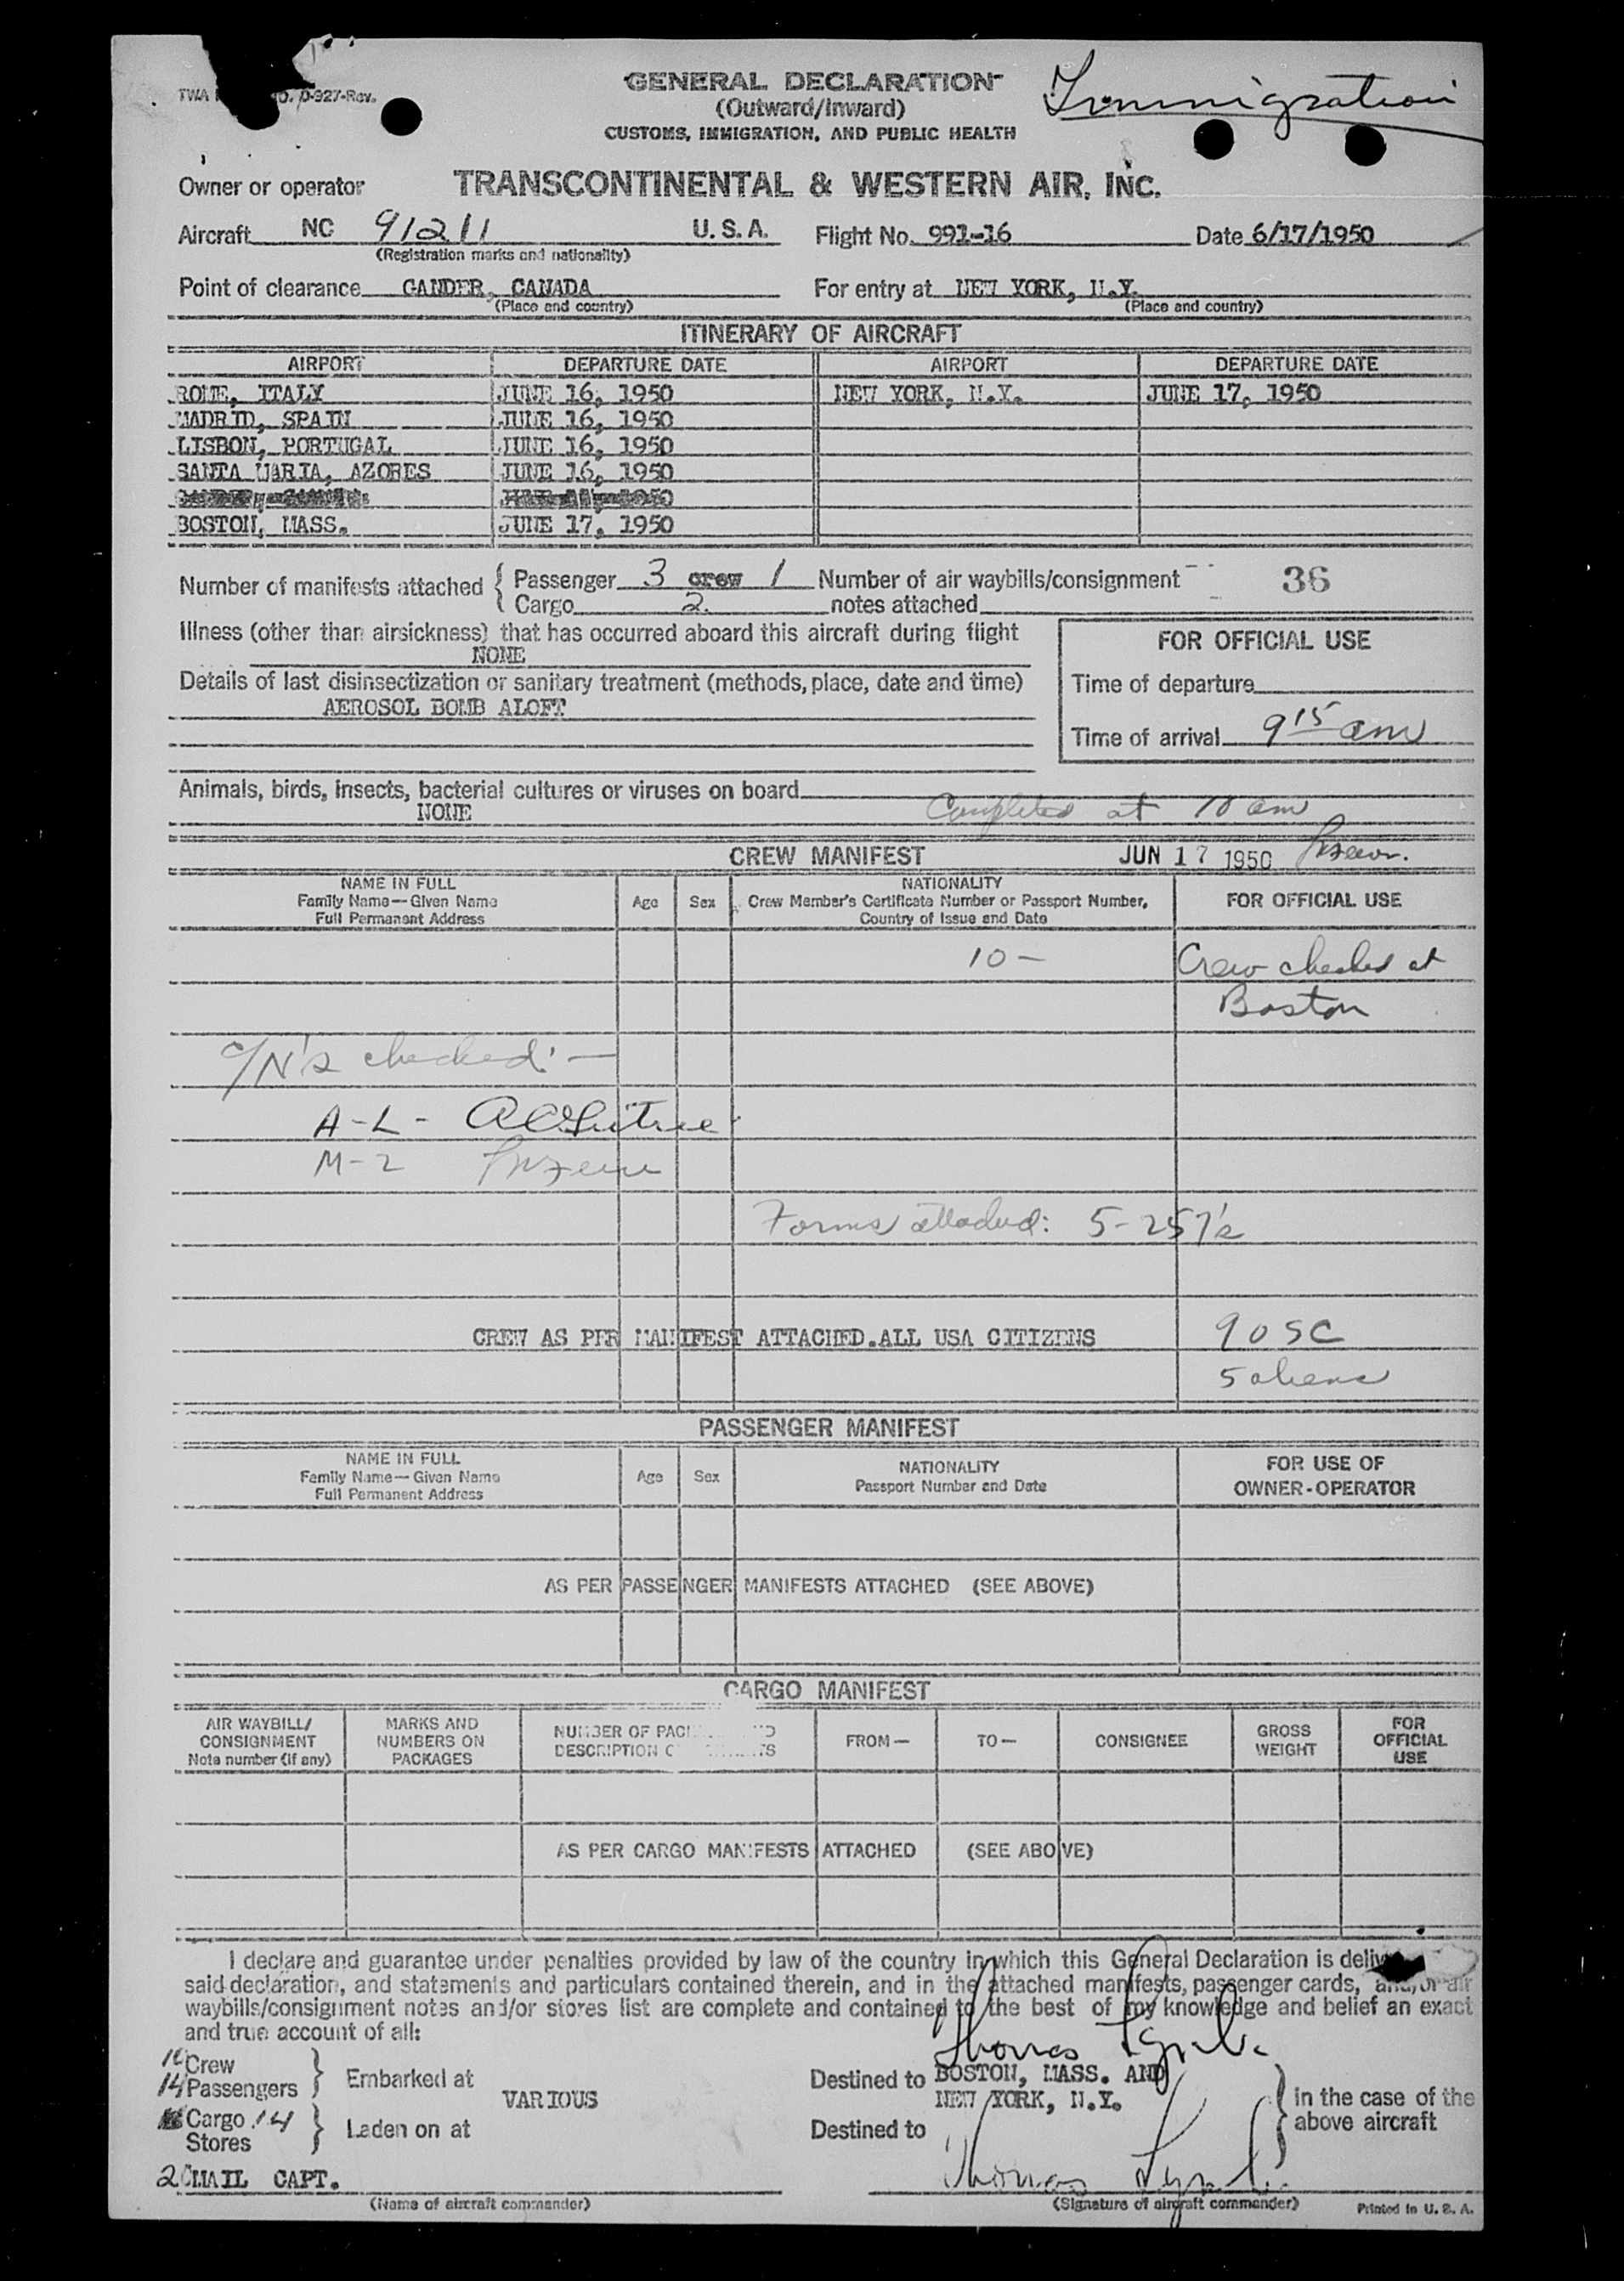 TWA O. 0-927-Rev.
GENERAL DECLARATION
(Outward/Inward)
CUSTOMS, IMMIGRATION, AND PUBLIC HEALTH
Immigration
Owner or operator TRANSCONTINENTAL & WESTERN AIR, INC.
Aircraft NC 91211 U.S.A. Flight No. 991-16 Date 6/17/1950
(Registration marks and nationality)
Point of clearance GANDER, CANADA For entry at NEW YORK, N.Y.
(Place and country) (Place and country)
ITINERARY OF AIRCRAFT
AIRPORT DEPARTURE DATE AIRPORT DEPARTURE DATE
ROME, ITALY JUNE 16, 1950 NEW YORK, N.Y. JUNE 17, 1950
MADRID, SPAIN JUNE 16, 1950
LISBON, PORTUGAL JUNE 16, 1950
SANTA MARIA, AZORES JUNE 16, 1950
BOSTON, MASS. JUNE 17, 1950
Number of manifests attached { Passenger 3 crew 1 Number of air waybills/consignment 36
Cargo 2. notes attached
Illness (other than airsickness) that has occurred aboard this aircraft during flight
NONE
FOR OFFICIAL USE
Details of last disinsectization or sanitary treatment (methods, place, date and time)
AEROSOL BOMB ALOFT
Time of departure
Time of arrival 9 15 am
Animals, birds, insects, bacterial cultures or viruses on board
NONE Completed at 10 am
CREW MANIFEST JUN 17 1950
NAME IN FULL
Family Name—Given Name
Full Permanent Address
Age Sex
NATIONALITY
Crew Member's Certificate Number or Passport Number,
Country of Issue and Date
FOR OFFICIAL USE
10 — Crew checked at
Boston
C/N's checked: —
A-L-
M-Z
Forms attached: 5-257's
CREW AS PER MANIFEST ATTACHED.ALL USA CITIZENS 9 USC
5 aliens
PASSENGER MANIFEST
NAME IN FULL
Family Name—Given Name
Full Permanent Address
Age Sex
NATIONALITY
Passport Number and Date
FOR USE OF
OWNER-OPERATOR
AS PER PASSENGER MANIFESTS ATTACHED (SEE ABOVE)
CARGO MANIFEST
AIR WAYBILL/
CONSIGNMENT
Note number (if any)
MARKS AND
NUMBERS ON
PACKAGES
NUMBER OF PAC
DESCRIPTION
FROM—
TO—
CONSIGNEE
GROSS
WEIGHT
FOR
OFFICIAL
USE
AS PER CARGO MANIFESTS ATTACHED (SEE ABOVE)
I declare and guarantee under penalties provided by law of the country in which this General Declaration is deliv
said declaration, and statements and particulars contained therein, and in the attached manifests, passenger cards, and/or air
waybills/consignment notes and/or stores list are complete and contained to the best of my knowledge and belief an exact
and true account of all:
10 Crew
14 Passengers } Embarked at VARIOUS Destined to BOSTON, MASS. AND
NEW YORK, N.Y.
Cargo 14
Stores } Laden on at Destined to
} in the case of the
above aircraft
20 MAIL CAPT. Thomas
(Name of aircraft commander) (Signature of aircraft commander) Printed in U.S.A.